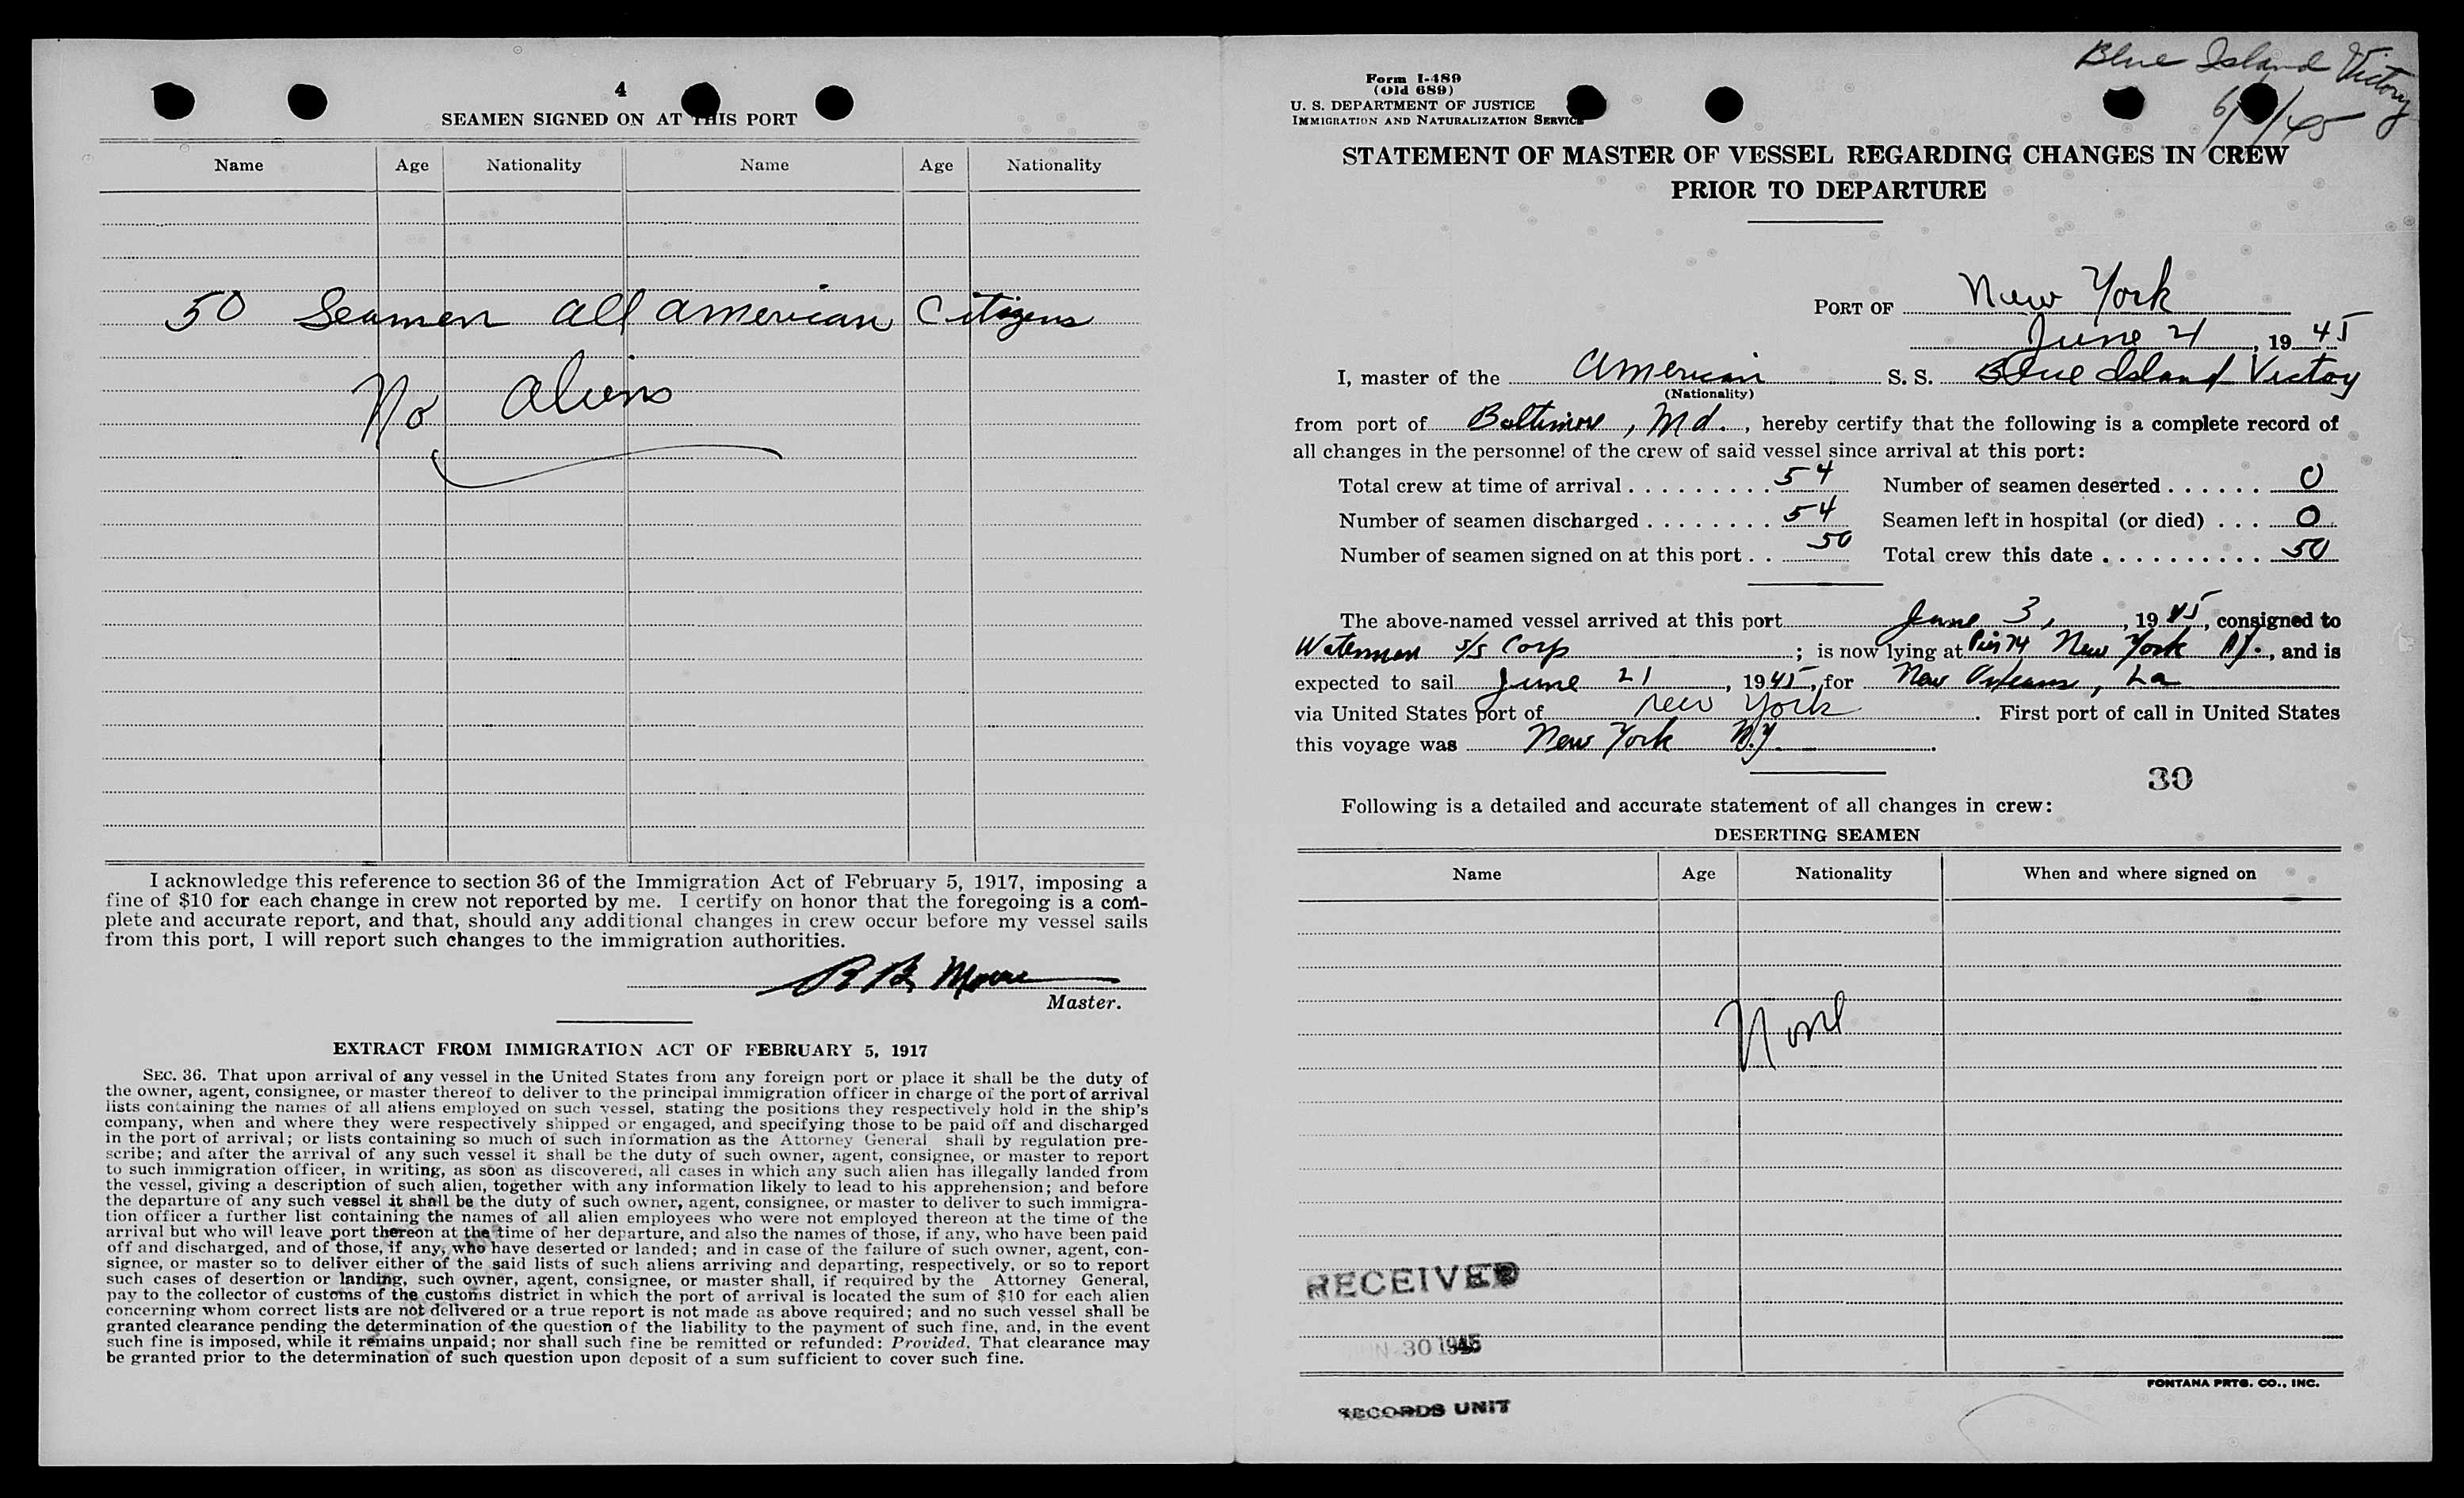 4
SEAMEN SIGNED ON AT THIS PORT
Name Age Nationality Name Age Nationality
50 Seamen all american Citizens
No aliens
I acknowledge this reference to section 36 of the Immigration Act of February 5, 1917, imposing a
fine of $10 for each change in crew not reported by me. I certify on honor that the foregoing is a com-
plete and accurate report, and that, should any additional changes in crew occur before my vessel sails
from this port, I will report such changes to the immigration authorities.
Moore
Master.
EXTRACT FROM IMMIGRATION ACT OF FEBRUARY 5, 1917
SEC. 36. That upon arrival of any vessel in the United States from any foreign port or place it shall be the duty of
the owner, agent, consignee, or master thereof to deliver to the principal immigration officer in charge of the port of arrival
lists containing the names of all aliens employed on such vessel, stating the positions they respectively hold in the ship's
company, when and where they were respectively shipped or engaged, and specifying those to be paid off and discharged
in the port of arrival; or lists containing so much of such information as the Attorney General shall by regulation pre-
scribe; and after the arrival of any such vessel it shall be the duty of such owner, agent, consignee, or master to report
to such immigration officer, in writing, as soon as discovered, all cases in which any such alien has illegally landed from
the vessel, giving a description of such alien, together with any information likely to lead to his apprehension; and before
the departure of any such vessel it shall be the duty of such owner, agent, consignee, or master to deliver to such immigra-
tion officer a further list containing the names of all alien employees who were not employed thereon at the time of the
arrival but who will leave port thereon at the time of her departure, and also the names of those, if any, who have been paid
off and discharged, and of those, if any, who have deserted or landed; and in case of the failure of such owner, agent, con-
signee, or master so to deliver either of the said lists of such aliens arriving and departing, respectively, or so to report
such cases of desertion or landing, such owner, agent, consignee, or master shall, if required by the Attorney General,
pay to the collector of customs of the customs district in which the port of arrival is located the sum of $10 for each alien
concerning whom correct lists are not delivered or a true report is not made as above required; and no such vessel shall be
granted clearance pending the determination of the question of the liability to the payment of such fine, and, in the event
such fine is imposed, while it remains unpaid; nor shall such fine be remitted or refunded: Provided, That clearance may
be granted prior to the determination of such question upon deposit of a sum sufficient to cover such fine.
Blue Island Victory
Form I-489
(Old 689)
U. S. DEPARTMENT OF JUSTICE
IMMIGRATION AND NATURALIZATION SERVICE
STATEMENT OF MASTER OF VESSEL REGARDING CHANGES IN CREW
PRIOR TO DEPARTURE
PORT OF New York
June 21, 1945
I, master of the American S. S. Blue Island Victory
(Nationality)
from port of Baltimore, Md., hereby certify that the following is a complete record of
all changes in the personnel of the crew of said vessel since arrival at this port:
Total crew at time of arrival . . . . . . . . . . 54 Number of seamen deserted . . . . . . 0
Number of seamen discharged . . . . . . . . 54 Seamen left in hospital (or died) . . . 0
Number of seamen signed on at this port . . 50 Total crew this date . . . . . . . . . . 50
The above-named vessel arrived at this port June 3, , 1945, consigned to
Waterman S/S Corp ; is now lying at Pier 74 New York , and is
expected to sail June 21, 1945, for New Orleans, La
via United States port of New York. First port of call in United States
this voyage was New York N.Y.
30
Following is a detailed and accurate statement of all changes in crew:
DESERTING SEAMEN
Name Age Nationality When and where signed on
None
RECEIVED
JUN 30 1945
RECORDS UNIT
FONTANA PRTG. CO., INC.